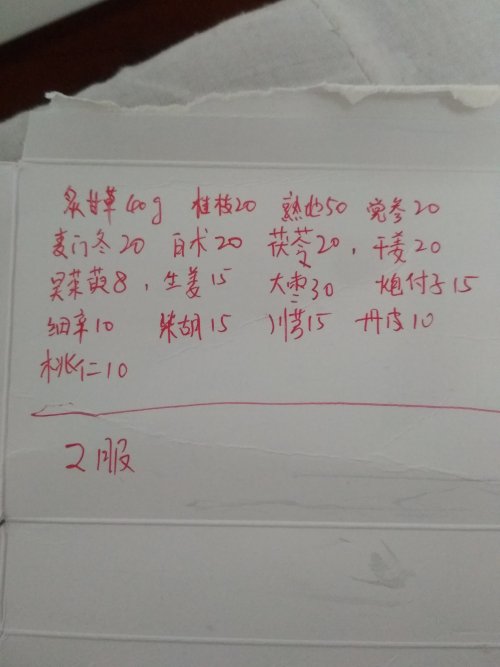 炙甘草40g 桂枝20 熟地50 党参20
麦门冬20 白术20 茯苓20, 干姜20
吴茱萸8, 生姜15 大枣30 炮付子15
细辛10 柴胡15 川芎15 丹皮10
桃仁10
2服